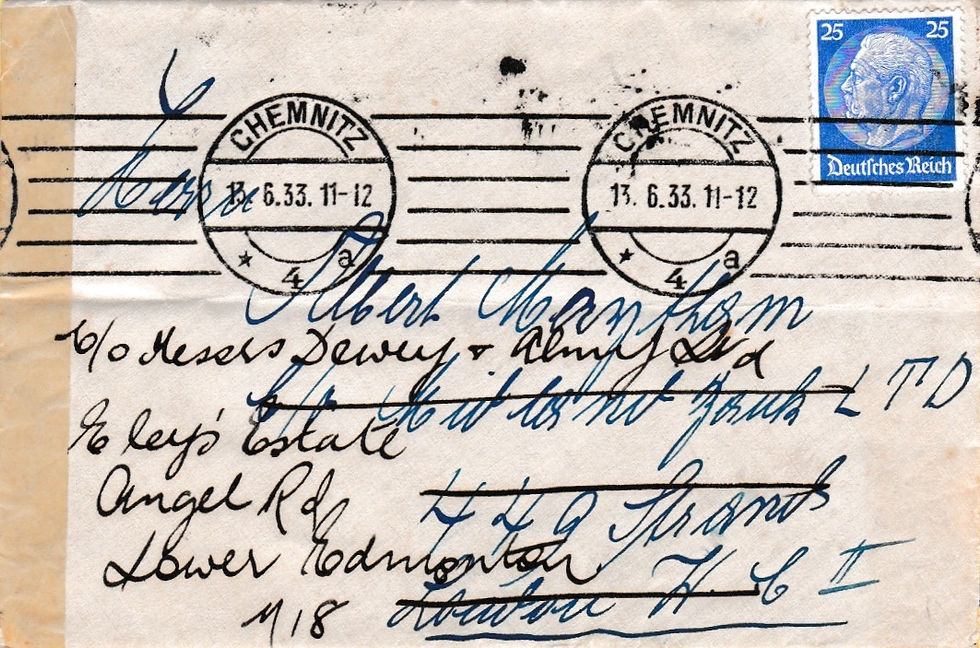 25 25
Deutsches Reich
CHEMNITZ
13.6.33. 11-12
* 4 a
CHEMNITZ
13.6.33. 11-12
* 4 a
Herrn
Albert
c/o Messrs Dewey + Almy Ltd
c/o LTD
Eley's Estate
Angel Rd
449 Strand
Lower Edmonton
London W. C II
N18